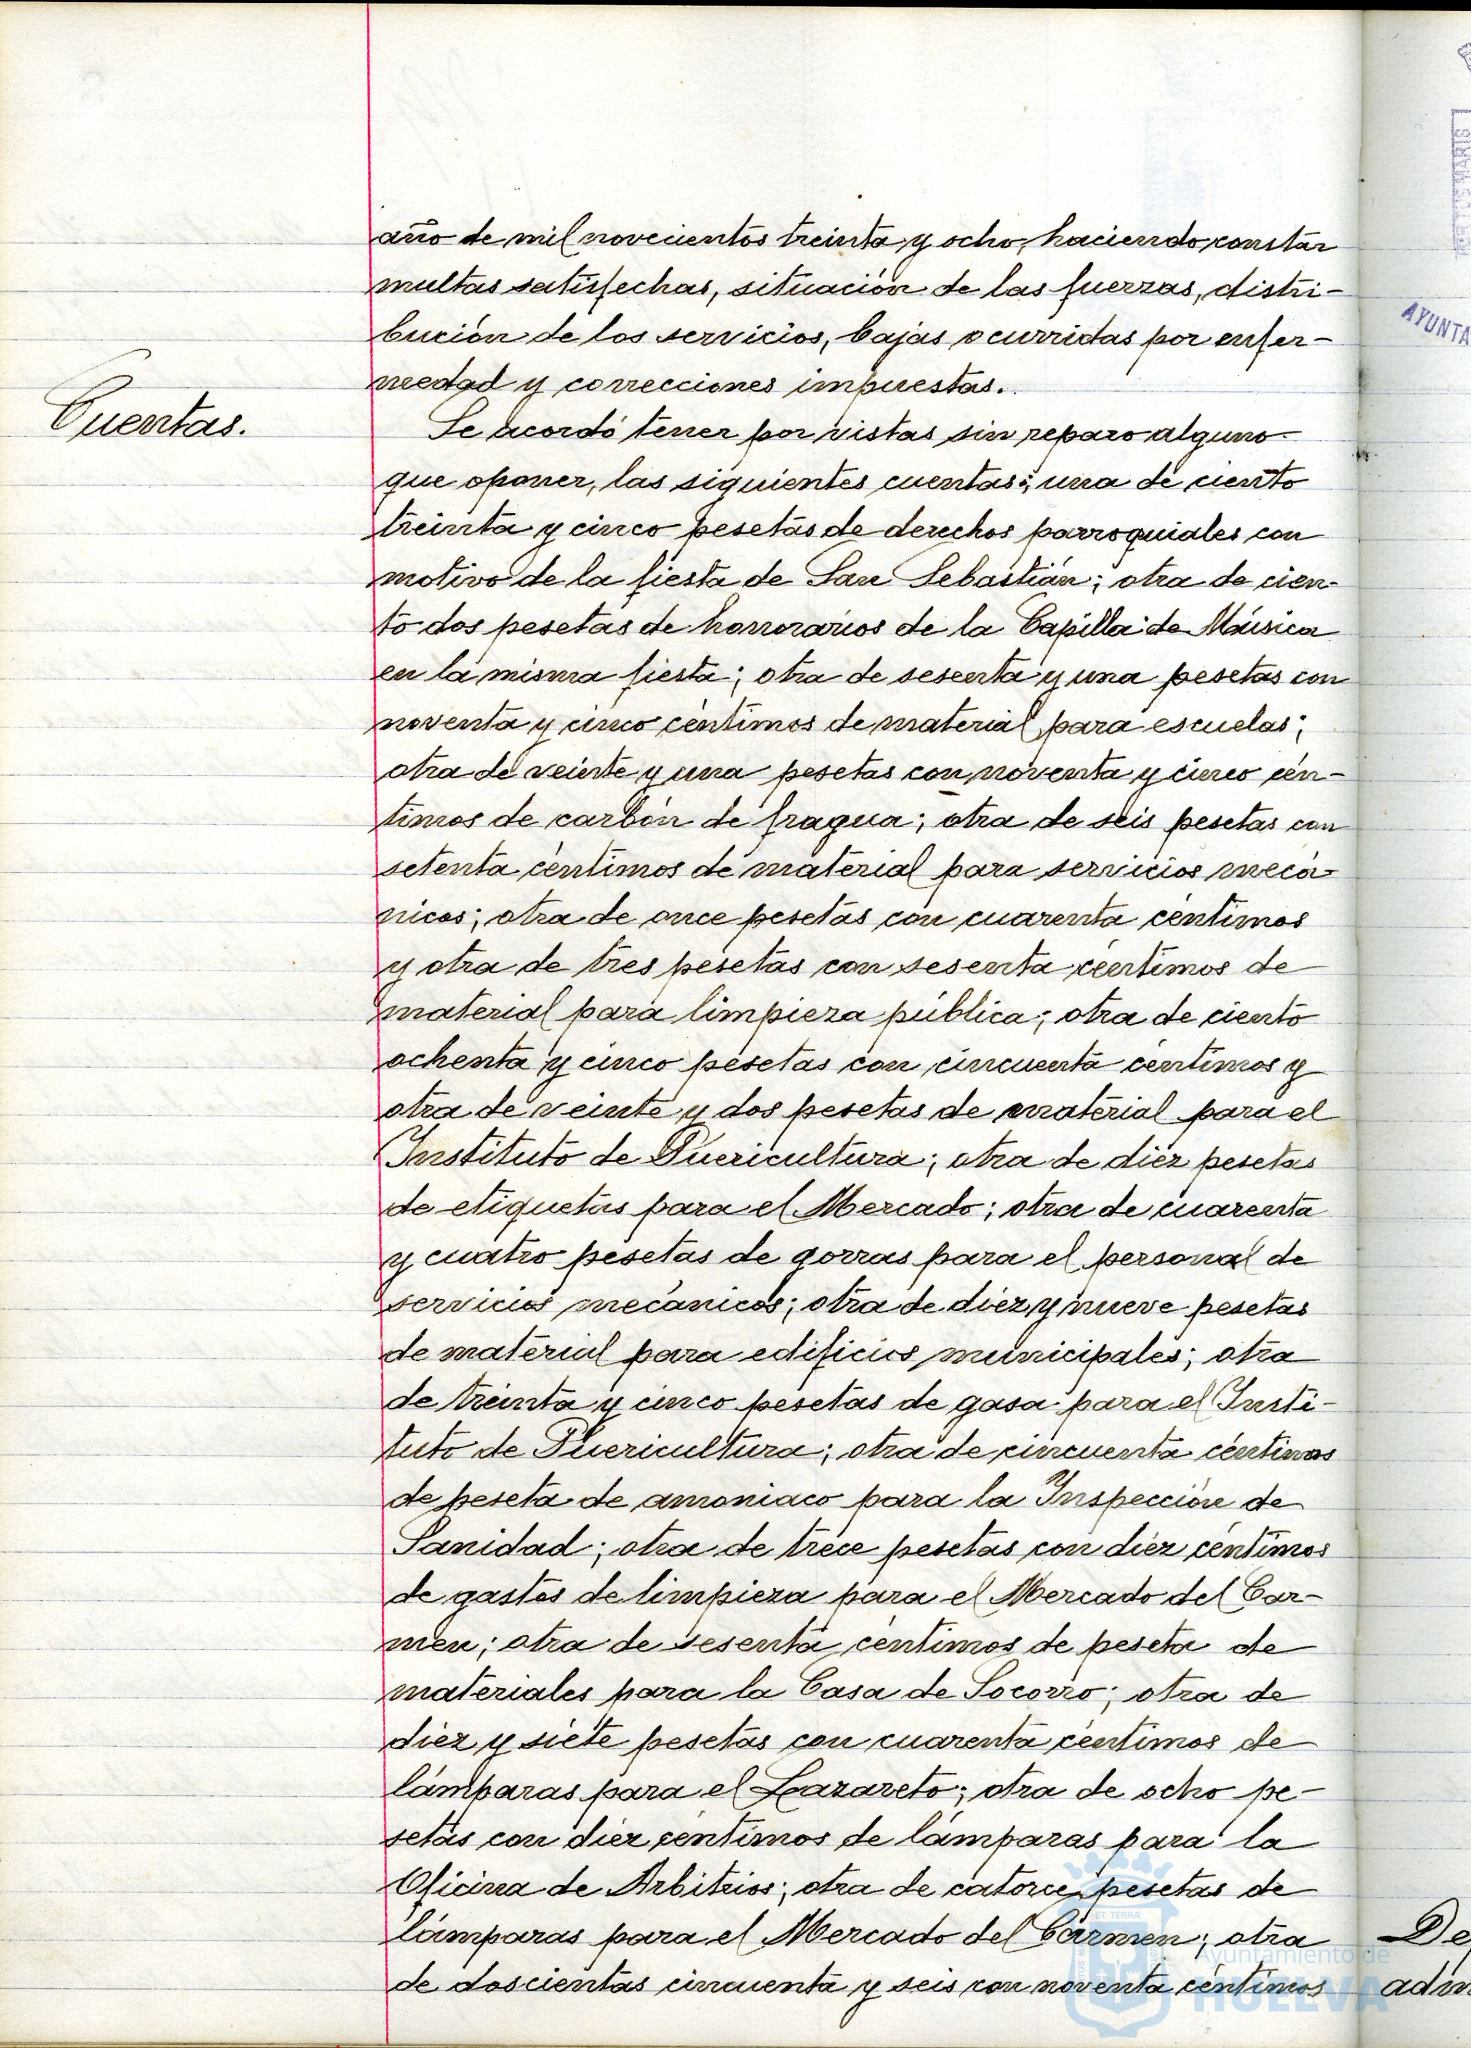 año de mil novecientos treinta y ocho, haciendo constar
multas satisfechas, situación de las fuerzas, distri-
bución de los servicios, bajas ocurridas por enfer-
medad y correcciones impuestas.
Cuentas.
Se acordó tener por vistas sin reparo alguno
que oponer, las siguientes cuentas: una de ciento
treinta y cinco pesetas de derechos parroquiales con
motivo de la fiesta de San Sebastián; otra de cien-
to dos pesetas de honorarios de la Capilla de Música
en la misma fiesta; otra de sesenta y una pesetas con
noventa y cinco céntimos de material para escuelas;
otra de veinte y una pesetas con noventa y cinco cén-
timos de carbón de fragua; otra de seis pesetas con
setenta céntimos de material para servicios mecá-
nicos; otra de once pesetas con cuarenta céntimos
y otra de tres pesetas con sesenta céntimos de
material para limpieza pública; otra de ciento
ochenta y cinco pesetas con cincuenta céntimos y
otra de veinte y dos pesetas de material para el
Instituto de Puericultura; otra de diez pesetas
de etiquetas para el Mercado; otra de cuarenta
y cuatro pesetas de gorras para el personal de
servicios mecánicos; otra de diez y nueve pesetas
de material para edificios municipales; otra
de treinta y cinco pesetas de gasa para el Insti-
tuto de Puericultura; otra de cincuenta céntimos
de peseta de amoniaco para la Inspección de
Sanidad; otra de trece pesetas con diez céntimos
de gastos de limpieza para el Mercado del Car-
men; otra de sesenta céntimos de peseta de
materiales para la Casa de Socorro; otra de
diez y siete pesetas con cuarenta céntimos de
lámparas para el Lazareto; otra de ocho pe-
setas con diez céntimos de lámparas para la
Oficina de Arbitrios; otra de catorce pesetas de
lámparas para el Mercado del Carmen; otra
de doscientas cincuenta y seis con noventa céntimos
AYUNTA
De
adm
ET TERRÆ
Ayuntamiento de
HUELVA